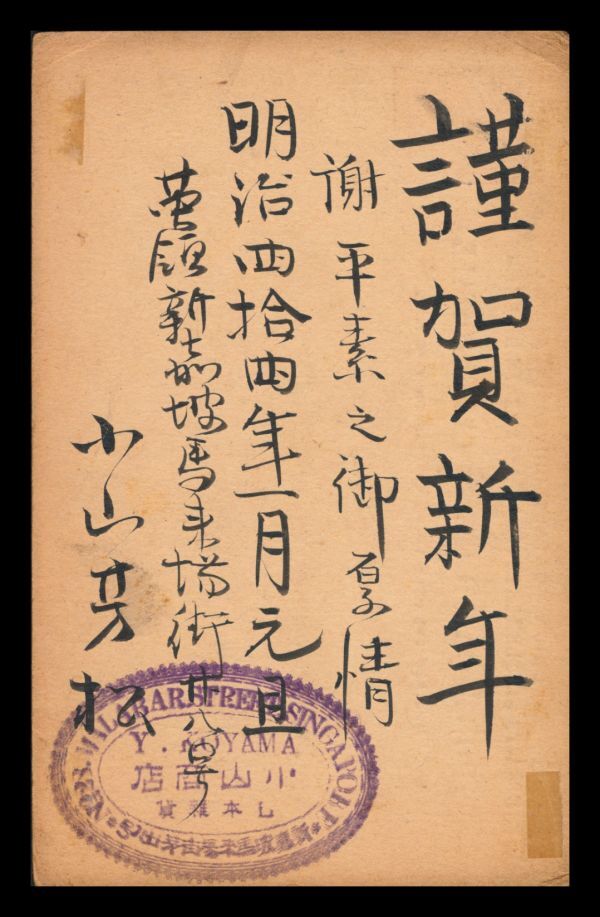 謹賀新年
謝平素之御厚情
明治四拾四年一月元旦
英領新嘉坡馬来街廿八号
小山芳松
MALABAR STREET SINGAPORE
Y. KOYAMA
小山商店
日本雜貨